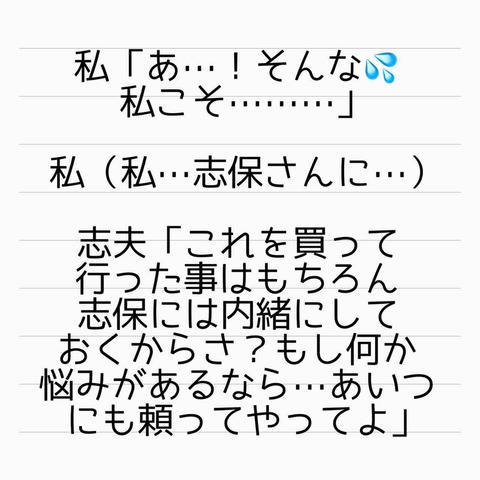 私「あ…！そんな💦
私こそ………」
私（私…志保さんに…）
志夫「これを買って
行った事はもちろん
志保には内緒にして
おくからさ？もし何か
悩みがあるなら…あいつ
にも頼ってやってよ」